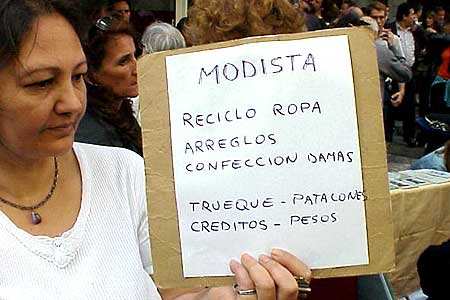 MODISTA
RECICLO ROPA
ARREGLOS
CONFECCION DAMAS
TRUEQUE - PATACONES
CREDITOS - PESOS